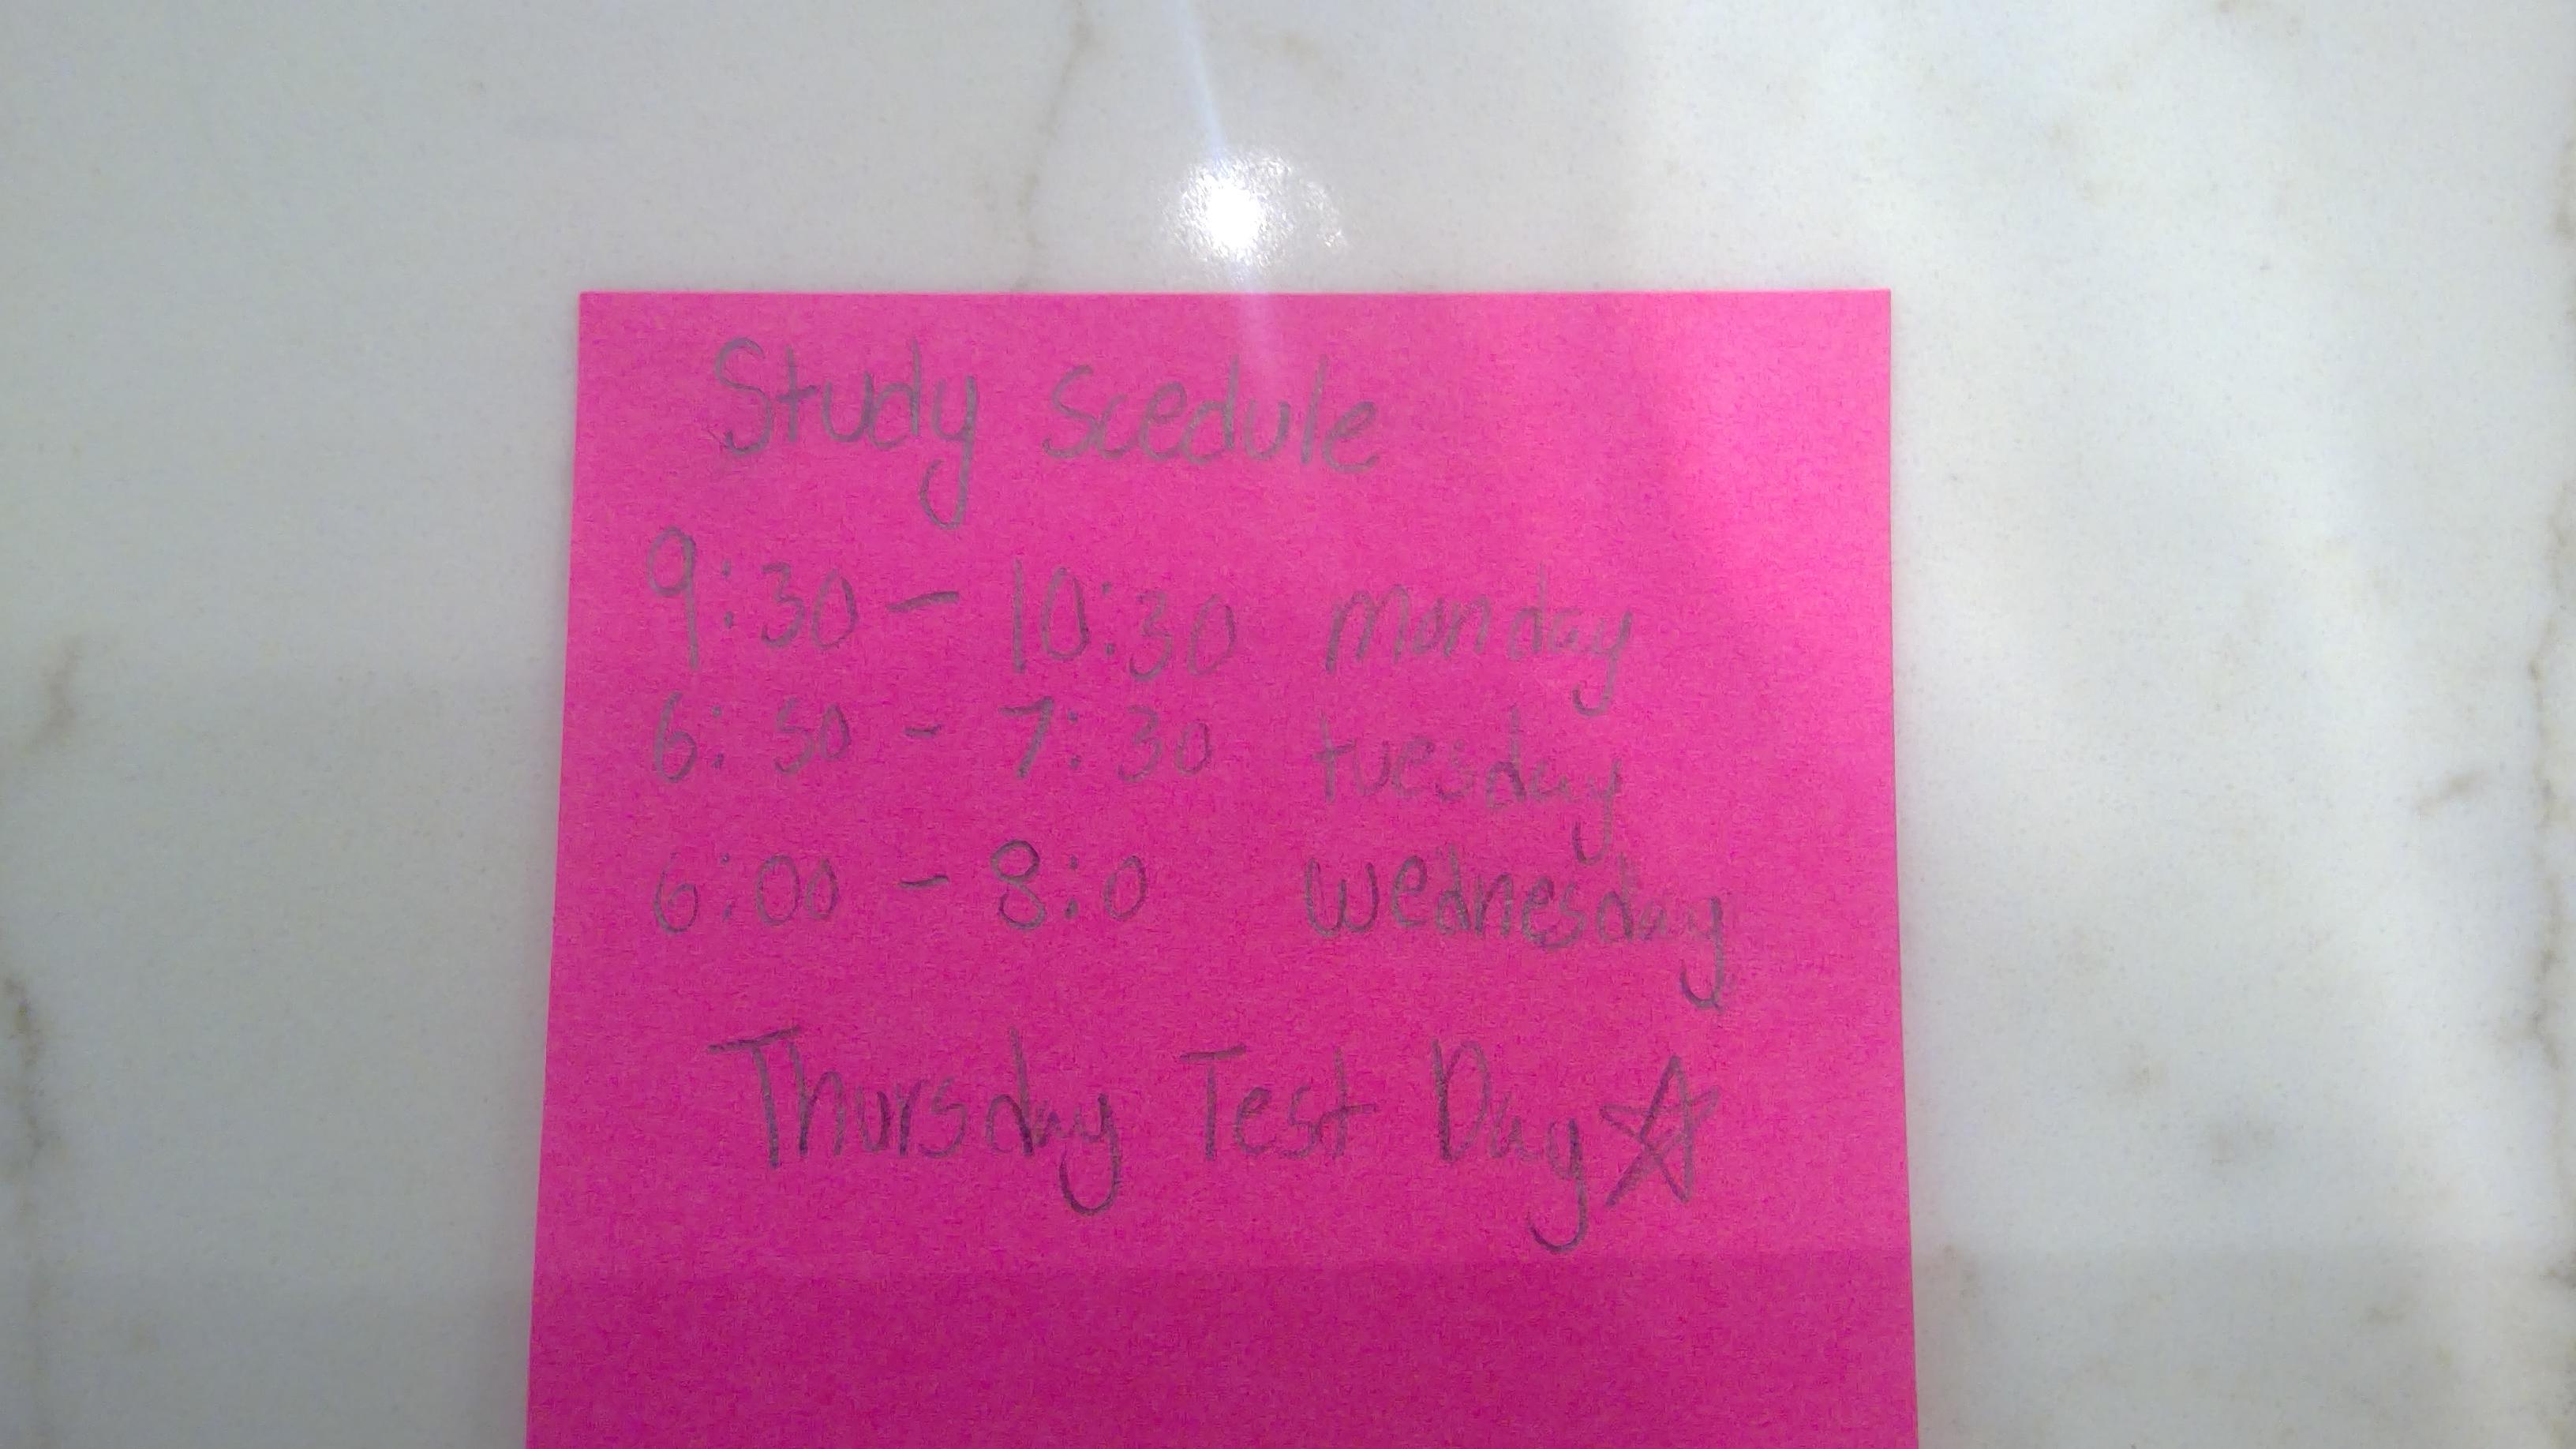 Study Scedule
9:30 - 10:30 monday
6:30 - 7:30 tuesday
6:00 - 8:0 wednesday
Thursday Test Day